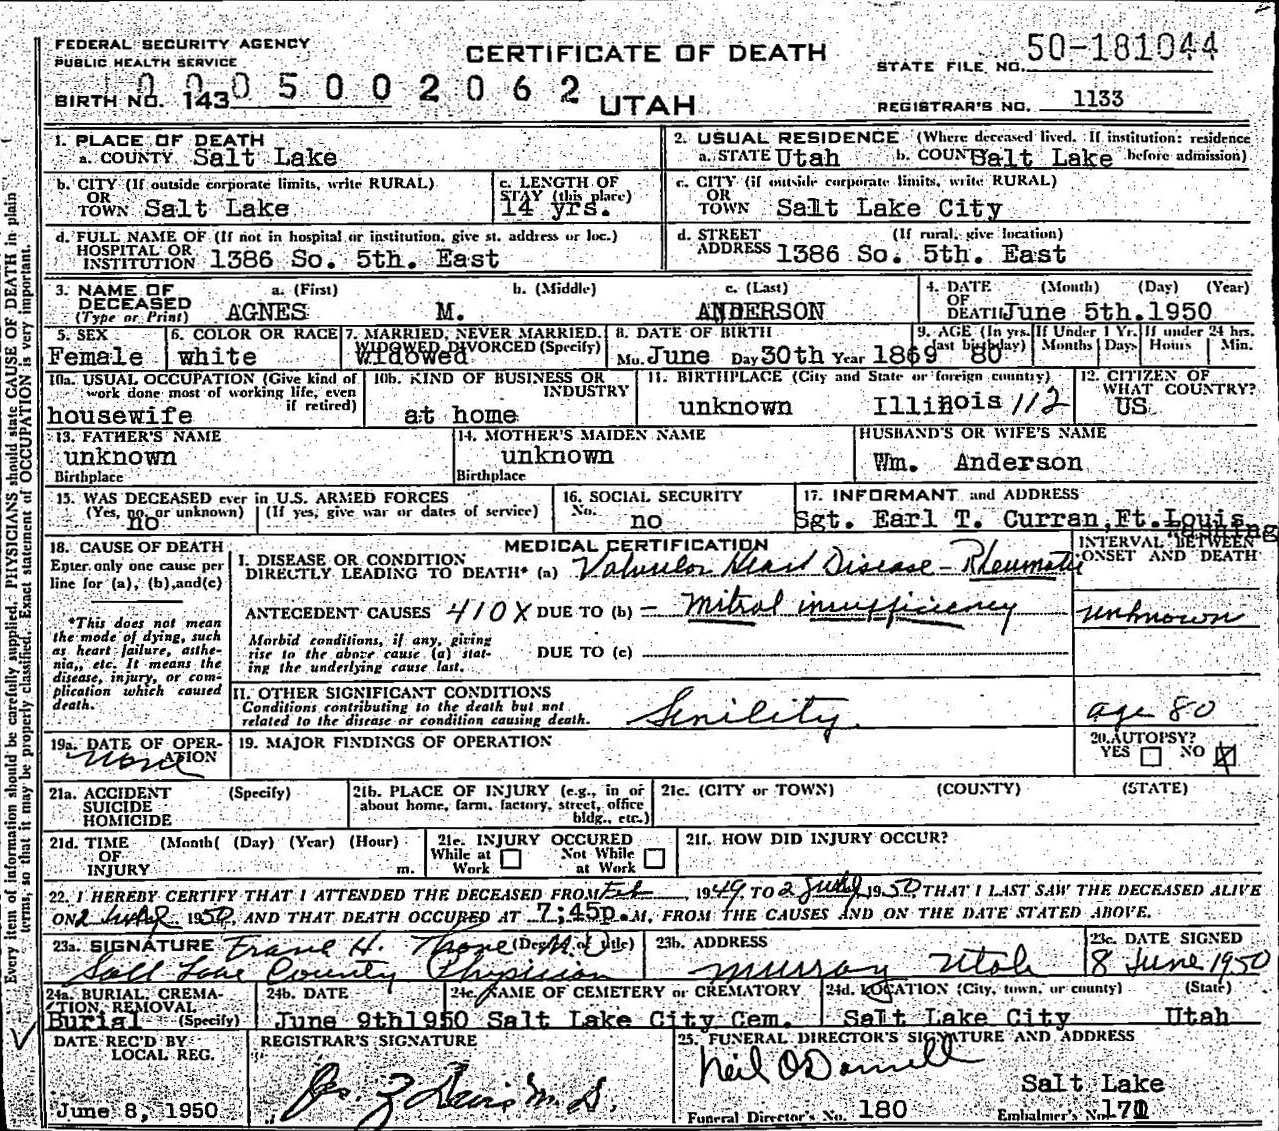 FEDERAL SECURITY AGENCY
PUBLIC HEALTH SERVICE
CERTIFICATE OF DEATH
STATE FILE NO. 50-181044
0005002062
BIRTH NO. 143
UTAH
REGISTRAR'S NO. 1133
1. PLACE OF DEATH
a. COUNTY Salt Lake
2. USUAL RESIDENCE (Where deceased lived. If institution: residence before admission)
a. STATE Utah b. COUNTY Salt Lake
b. CITY (If outside corporate limits, write RURAL)
OR
TOWN Salt Lake
c. LENGTH OF
STAY (this place)
14 yrs.
c. CITY (if outside corporate limits, write RURAL)
OR
TOWN Salt Lake City
d. FULL NAME OF (If not in hospital or institution, give st. address or loc.)
HOSPITAL OR
INSTITUTION 1386 So. 5th. East
d. STREET (If rural, give location)
ADDRESS 1386 So. 5th. East
3. NAME OF DECEASED (Type or Print)
a. (First) b. (Middle) c. (Last)
AGNES M. ANDERSON
4. DATE OF DEATH (Month) (Day) (Year)
June 5th. 1950
5. SEX
Female
6. COLOR OR RACE
white
7. MARRIED, NEVER MARRIED, WIDOWED, DIVORCED (Specify)
widowed
8. DATE OF BIRTH
Mo. June Day 30th Year 1869
9. AGE (In yrs. last birthday) 80
If Under 1 Yr. Months Days
If under 24 hrs. Hours Min.
10a. USUAL OCCUPATION (Give kind of work done most of working life, even if retired)
housewife
10b. KIND OF BUSINESS OR INDUSTRY
at home
11. BIRTHPLACE (City and State or foreign country)
unknown Illinois 112
12. CITIZEN OF WHAT COUNTRY?
US
13. FATHER'S NAME
unknown
Birthplace
14. MOTHER'S MAIDEN NAME
unknown
Birthplace
HUSBAND'S OR WIFE'S NAME
Wm. Anderson
15. WAS DECEASED ever in U.S. ARMED FORCES
(Yes, no, or unknown) (If yes, give war or dates of service)
no
16. SOCIAL SECURITY
No. no
17. INFORMANT and ADDRESS
Sgt. Earl T. Curran, Ft. Louis
18. CAUSE OF DEATH
Enter only one cause per line for (a), (b), and (c)
*This does not mean the mode of dying, such as heart failure, asthenia, etc. It means the disease, injury, or complication which caused death.
MEDICAL CERTIFICATION
INTERVAL BETWEEN ONSET AND DEATH
I. DISEASE OR CONDITION
DIRECTLY LEADING TO DEATH* (a) Valvular Heart Disease - Rheumatic
ANTECEDENT CAUSES 410X DUE TO (b) - mitral insufficiency
unknown
Morbid conditions, if any, giving rise to the above cause (a) stating the underlying cause last.
DUE TO (c)
II. OTHER SIGNIFICANT CONDITIONS
Conditions contributing to the death but not related to the disease or condition causing death.
Senility.
age 80
19a. DATE OF OPERATION
None
19. MAJOR FINDINGS OF OPERATION
20. AUTOPSY?
YES NO X
21a. ACCIDENT (Specify)
SUICIDE
HOMICIDE
21b. PLACE OF INJURY (e.g., in or about home, farm, factory, street, office bldg., etc.)
21c. (CITY or TOWN) (COUNTY) (STATE)
21d. TIME (Month( (Day) (Year) (Hour)
OF
INJURY m.
21e. INJURY OCCURED
While at Work Not While at Work
21f. HOW DID INJURY OCCUR?
22. I HEREBY CERTIFY THAT I ATTENDED THE DECEASED FROM Feb, 1949, TO 2 June, 1950, THAT I LAST SAW THE DECEASED ALIVE
ON 2 June, 1950, AND THAT DEATH OCCURED AT 7;45p.M, FROM THE CAUSES AND ON THE DATE STATED ABOVE.
23a. SIGNATURE (Degree or Title) M.D.
Salt Lake County Physician
23b. ADDRESS
Murray Utah
23c. DATE SIGNED
8 June 1950
24a. BURIAL, CREMATION, REMOVAL (Specify)
Burial
24b. DATE
June 9th1950
24c. NAME OF CEMETERY or CREMATORY
Salt Lake City Cem.
24d. LOCATION (City, town, or county) (State)
Salt Lake City Utah
DATE REC'D BY LOCAL REG.
June 8, 1950
REGISTRAR'S SIGNATURE
25. FUNERAL DIRECTOR'S SIGNATURE AND ADDRESS
Neil O'Donnell
Salt Lake
Funeral Director's No. 180
Embalmer's No.
Every item of information should be carefully supplied. PHYSICIANS should state CAUSE OF DEATH in plain
terms, so that it may be properly classified. Exact statement of OCCUPATION is very important.